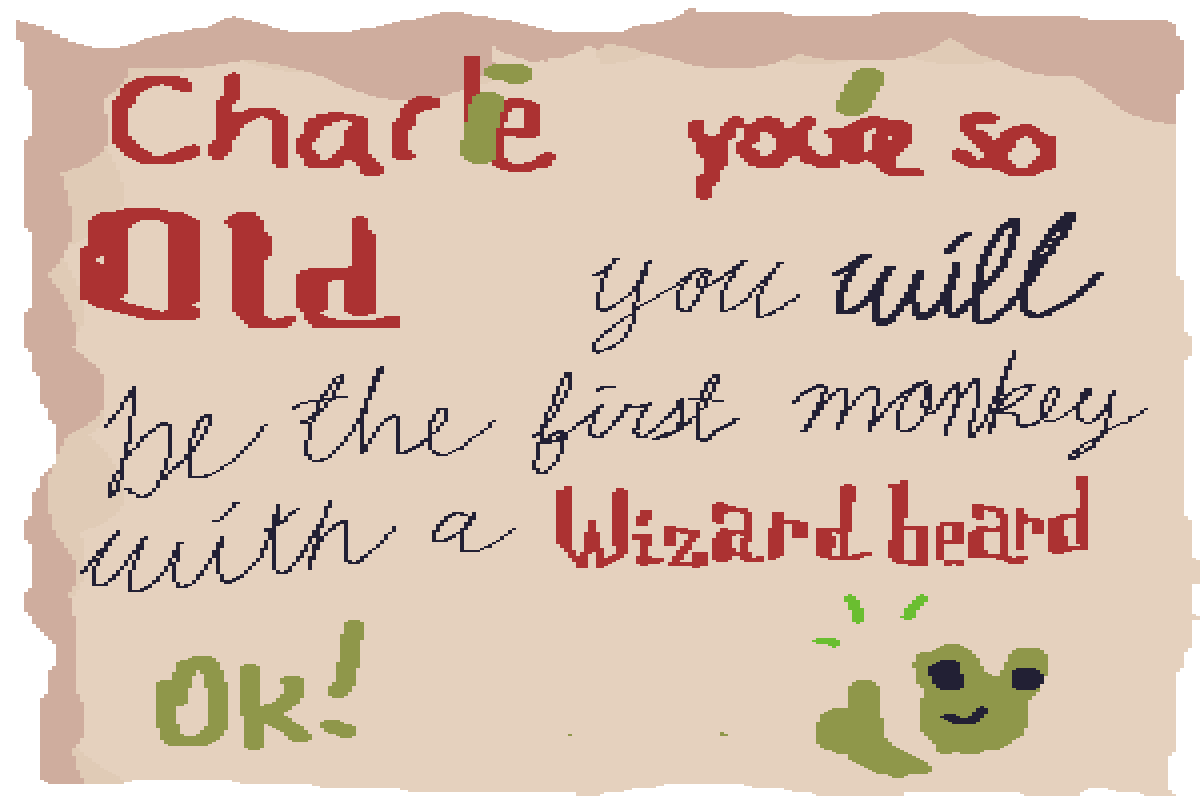 Charlie you're so
Old you will
be the first monkey
with a Wizard beard
Ok!